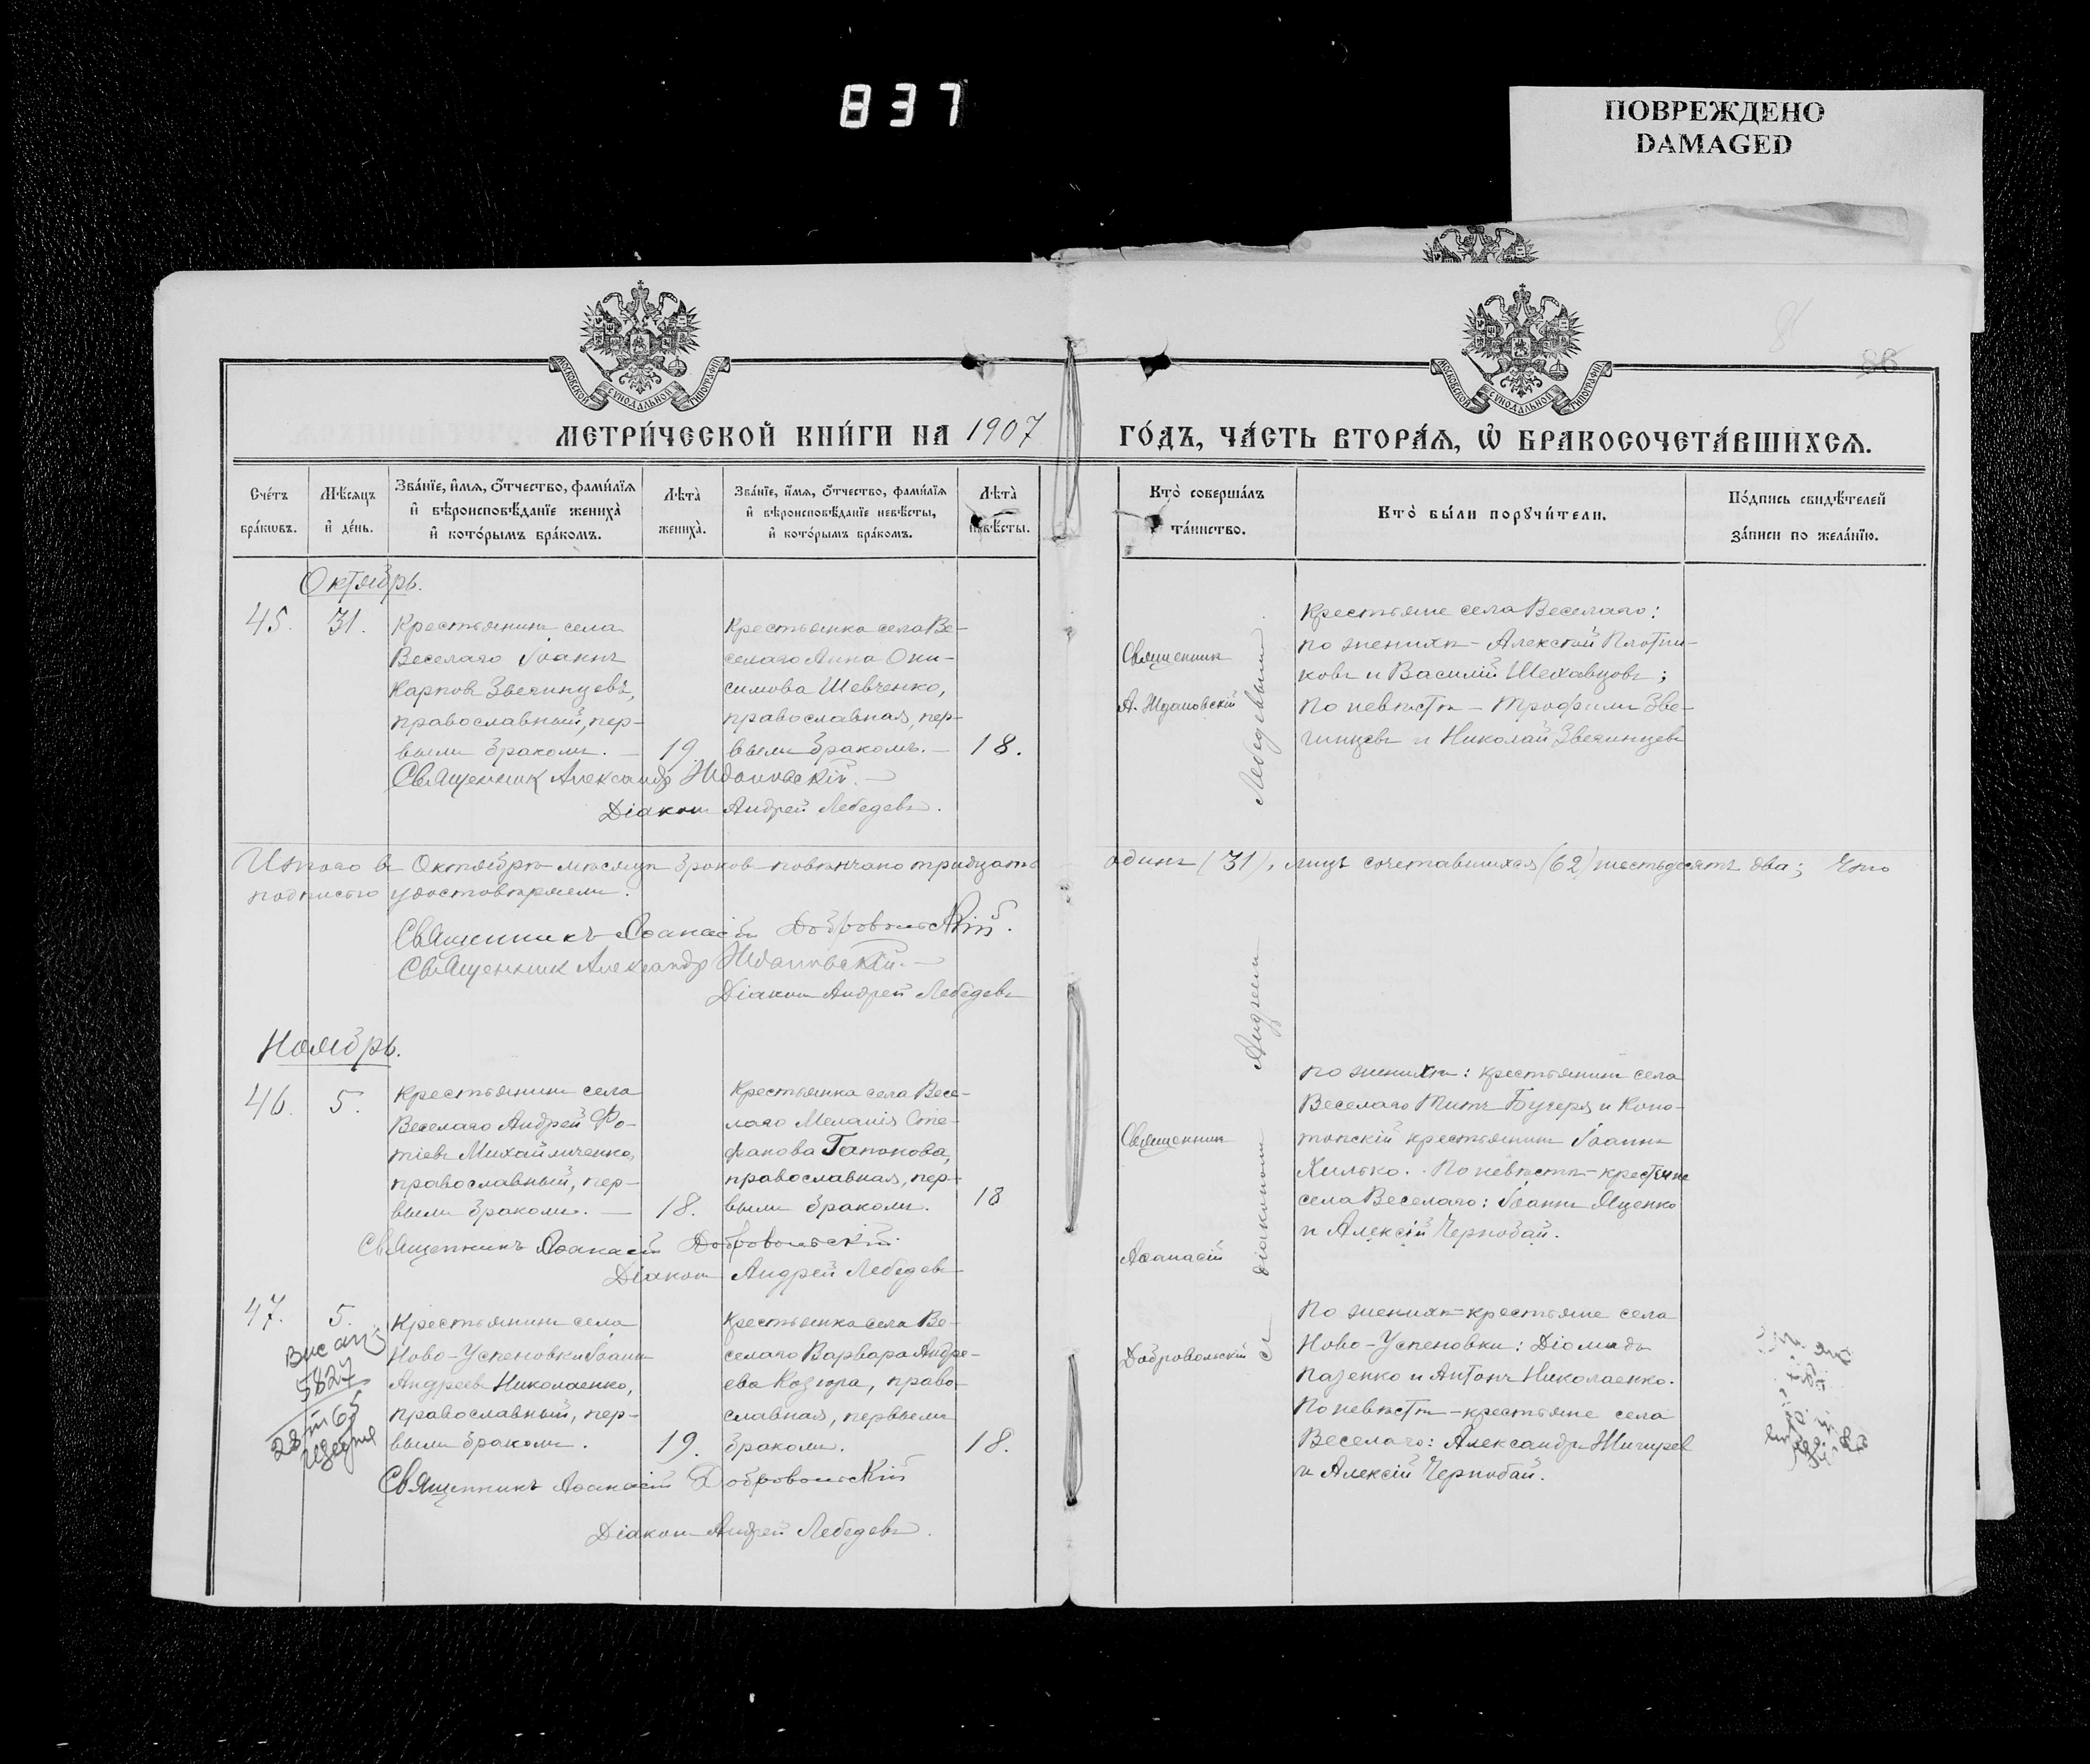 837
ПОВРЕЖДЕНО
DAMAGED
86
МОСКОВСКОЙ СѴНОДАЛЬНОЙ ТИПОГРАФІИ
МОСКОВСКОЙ СѴНОДАЛЬНОЙ ТИПОГРАФІИ
МЕТРИ́ЧЕСКОЙ КНИ́ГИ НА 1907 ГО́ДЪ, ЧА́СТЬ ВТОРА́Ѧ, Ѡ҆ БРАКОСОЧЕТА́ВШИХСѦ.
Сче́тъ бра́кѡвъ.
Мѣ́сяцъ и҆ де́нь.
Зва́нїе, и҆́мѧ, ѻ҆́тчество, фами́лїѧ и҆ вѣроисповѣ́данїе жениха̀ и҆ кото́рымъ бра́комъ.
Лѣта̀ жениха̀.
Зва́нїе, и҆́мѧ, ѻ҆́тчество, фами́лїѧ и҆ вѣроисповѣ́данїе невѣ́сты, и҆ кото́рымъ бра́комъ.
Лѣта̀ невѣ́сты.
Кто̀ соверша́лъ та́инство.
Кто̀ бы́ли порꙋчи́тели.
По́дпись свидѣ́телей за́писи по жела́нїю.
Октябрь.
45.
31.
Крестьянинъ села
Веселаго Іоаннъ
Карповъ Звегинцевъ,
православный, пер-
вымъ бракомъ. —
19.
Крестьянка села Ве-
селаго Анна Они-
симова Шевченко,
православная, пер-
вымъ бракомъ. —
18.
Священникъ
А. Ждановскій
Крестьяне села Веселаго:
по женихѣ – Алексѣй Плотни-
ковъ и Василій Шехавцовъ;
по невѣстѣ – Трофимъ Зве-
гинцевъ и Николай Звегинцевъ
Священникъ Александръ Ждановскій. —
Діаконъ Андрей Лебедевъ.
Итого въ Октябрѣ мѣсяцѣ браковъ повѣнчано тридцать одинъ (31), лицъ сочетавшихся (62) шестьдесятъ два; Что
подписью удостовѣряемъ.
Священникъ Аѳанасій Добровольскій.
Священникъ Александръ Ждановскій. —
Діаконъ Андрей Лебедевъ
Ноябрь.
46.
5.
Крестьянинъ села
Веселаго Андрей Фо-
тіевъ Михайличенко,
православный, пер-
вымъ бракомъ. —
18.
Крестьянка села Весе-
лаго Меланія Сте-
фанова Гапонова,
православная, пер-
вымъ бракомъ.
18
Священникъ
Аѳанасій
Добровольскій
съ діакономъ Андреемъ Лебедевымъ.
по женихѣ: крестьянинъ села
Веселаго Титъ Бугеря и Коно-
топскій крестьянинъ Іоаннъ
Хилько. По невѣстѣ – крестьяне
села Веселаго: Іоаннъ Яценко
и Алексій Чернобай.
Священникъ Аѳанасій Добровольскій
Діаконъ Андрей Лебедевъ
47.
5.
5827
28/III 65
Крестьянинъ села
Ново-Успеновки Іоаннъ
Андреевъ Николаенко,
православный, пер-
вымъ бракомъ.
19.
Крестьянка села Ве-
селаго Варвара Андре-
ева Козюра, право-
славная, первымъ
бракомъ.
18.
По женихѣ – крестьяне села
Ново-Успеновки: Діомидъ
Пазенко и Антонъ Николаенко.
По невѣстѣ – крестьяне села
Веселаго: Александръ Жигирев
и Алексій Чернобай.
Священникъ Аѳанасій Добровольскій
Діаконъ Андрей Лебедевъ.